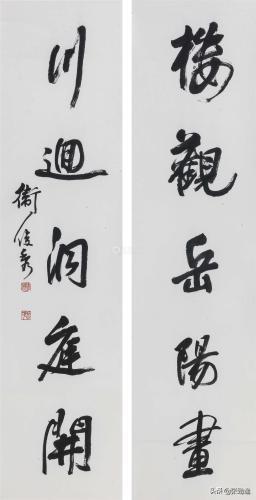 樓觀岳陽畫
川迴洞庭開
衛俊秀